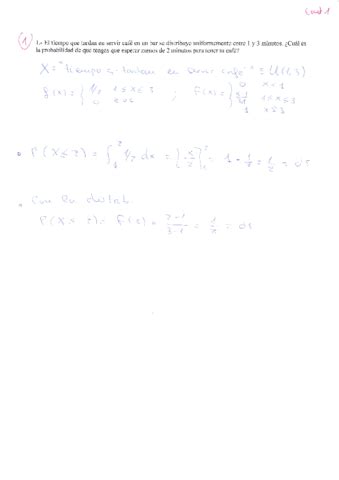 1
1.- El tiempo que tardan en servir café en un bar se distribuye uniformemente entre 1 y 3 minutos. ¿Cuál es
la probabilidad de que tengas que esperar menos de 2 minutos para tomar tu café?
X = "tiempo q tardan en servir café"
f(x) = { 1/2 1 ≤ x ≤ 3 ; F(x) = { 0 x < 1
1 ≤ x ≤ 3
1
P(X ≤ 2) = ∫ 1/2 dx = [x/2] = 1 - 1/2 = 1/2 = 0.5
Con la distrib.
P(X ≤ 2) = F(2) = 2-1/3-1 = 1/2 = 0.5